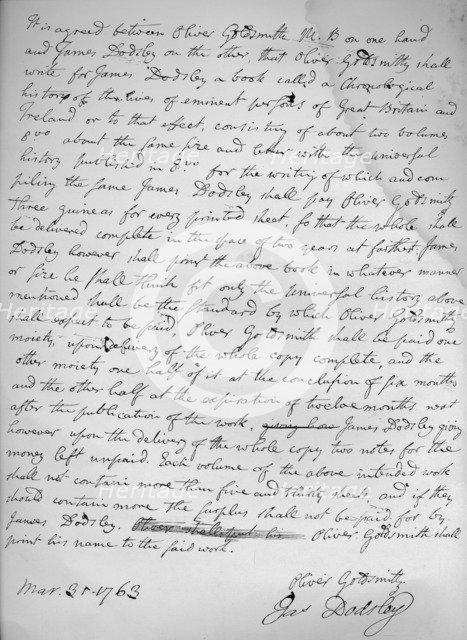 It is agreed between Oliver Goldsmith M. B on one hand
and James Dodsley on the other, that Oliver Goldsmith shall
write for James Dodsley a book called a Chronological
history of the lives of eminent persons of Great Britain and
Ireland or to that effect, consisting of about two volumes
8vo about the same size and letter with the universal
history published in 8vo for the writing of which and com
piling the same James Dodsley shall pay Oliver Goldsmith
three guineas for every printed sheet, so that the whole shall
be delivered complete in the space of two years at farthest. James
Dodsley however shall print the above book in whatever manner
or size he shall think fit only the Universal history above
mentioned shall be the standard by which Oliver Goldsmith
shall expect to be paid. Oliver Goldsmith shall be paid one
moiety upon delivery of the whole copy complete, and the
other moiety one half of it at the conclusion of six months
and the other half at the expiration of twelve months next
after the publication of the work, James Dodsley giving
however upon the delivery of the whole copy two notes for the
money left unpaid. Each volume of the above intended work
shall not contain more than five and thirty sheets and if they
should contain more the surplus shall not be paid for by
James Dodsley. Oliver Goldsmith shall
print his name to the said work.
Mar. 31. 1763
Oliver Goldsmith
Jas Dodsley
Heritage
Heritage
Heritage
Heritage
Images
Images